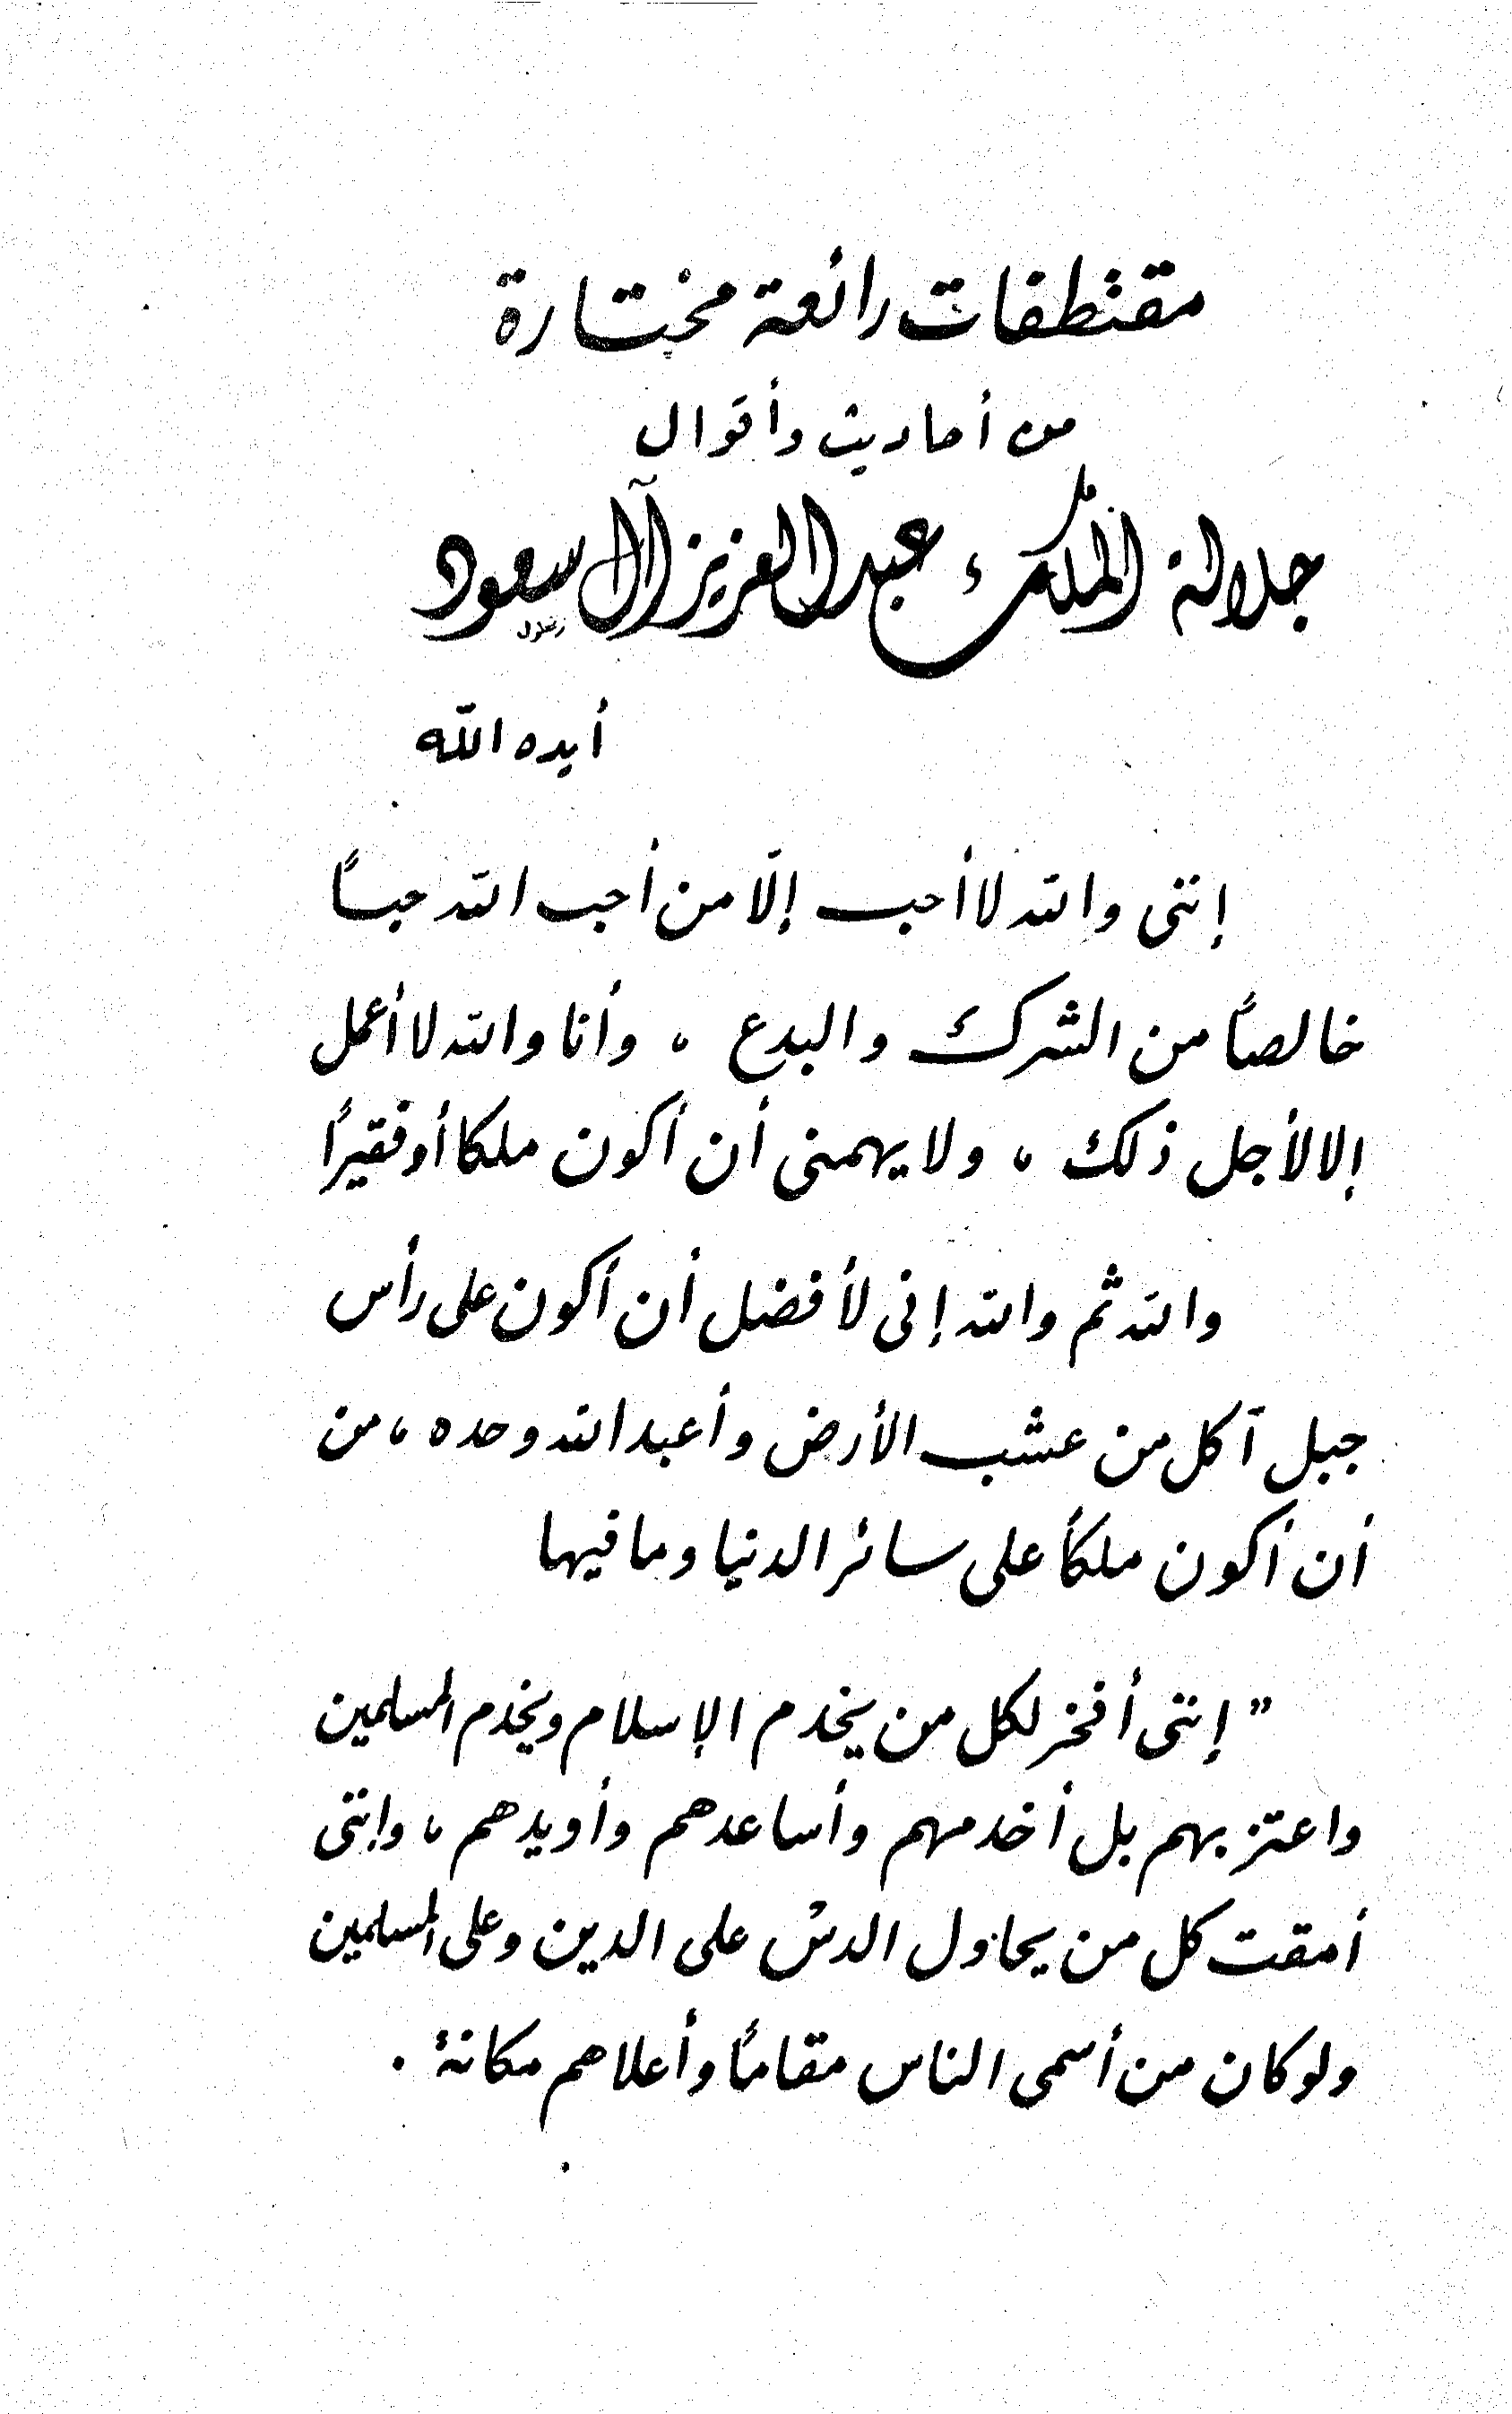 مقتطفات رائعة مختارة
من أحاديث وأقوال
جلالة الملك عبد العزيز آل سعود
أيده الله
إننى والله لا أحب إلّا من أحب الله حباً
خالصاً من الشرك والبدع ، وأنا والله لا أعمل
إلا لأجل ذلك ، ولا يهمنى أن أكون ملكا أو فقيراً
والله ثم والله إنى لأفضل أن أكون على رأس
جبل آكل من عشب الأرض وأعبد الله وحده ، من
أن أكون ملكاً على سائر الدنيا وما فيها
" إننى أفخر لكل من يخدم الإسلام ويخدم المسلمين
واعتز بهم بل أخدمهم وأساعدهم وأويدهم ، وإننى
أمقت كل من يحاول الدس على الدين وعلى المسلمين
ولو كان من أسمى الناس مقاماً وأعلاهم مكانة .